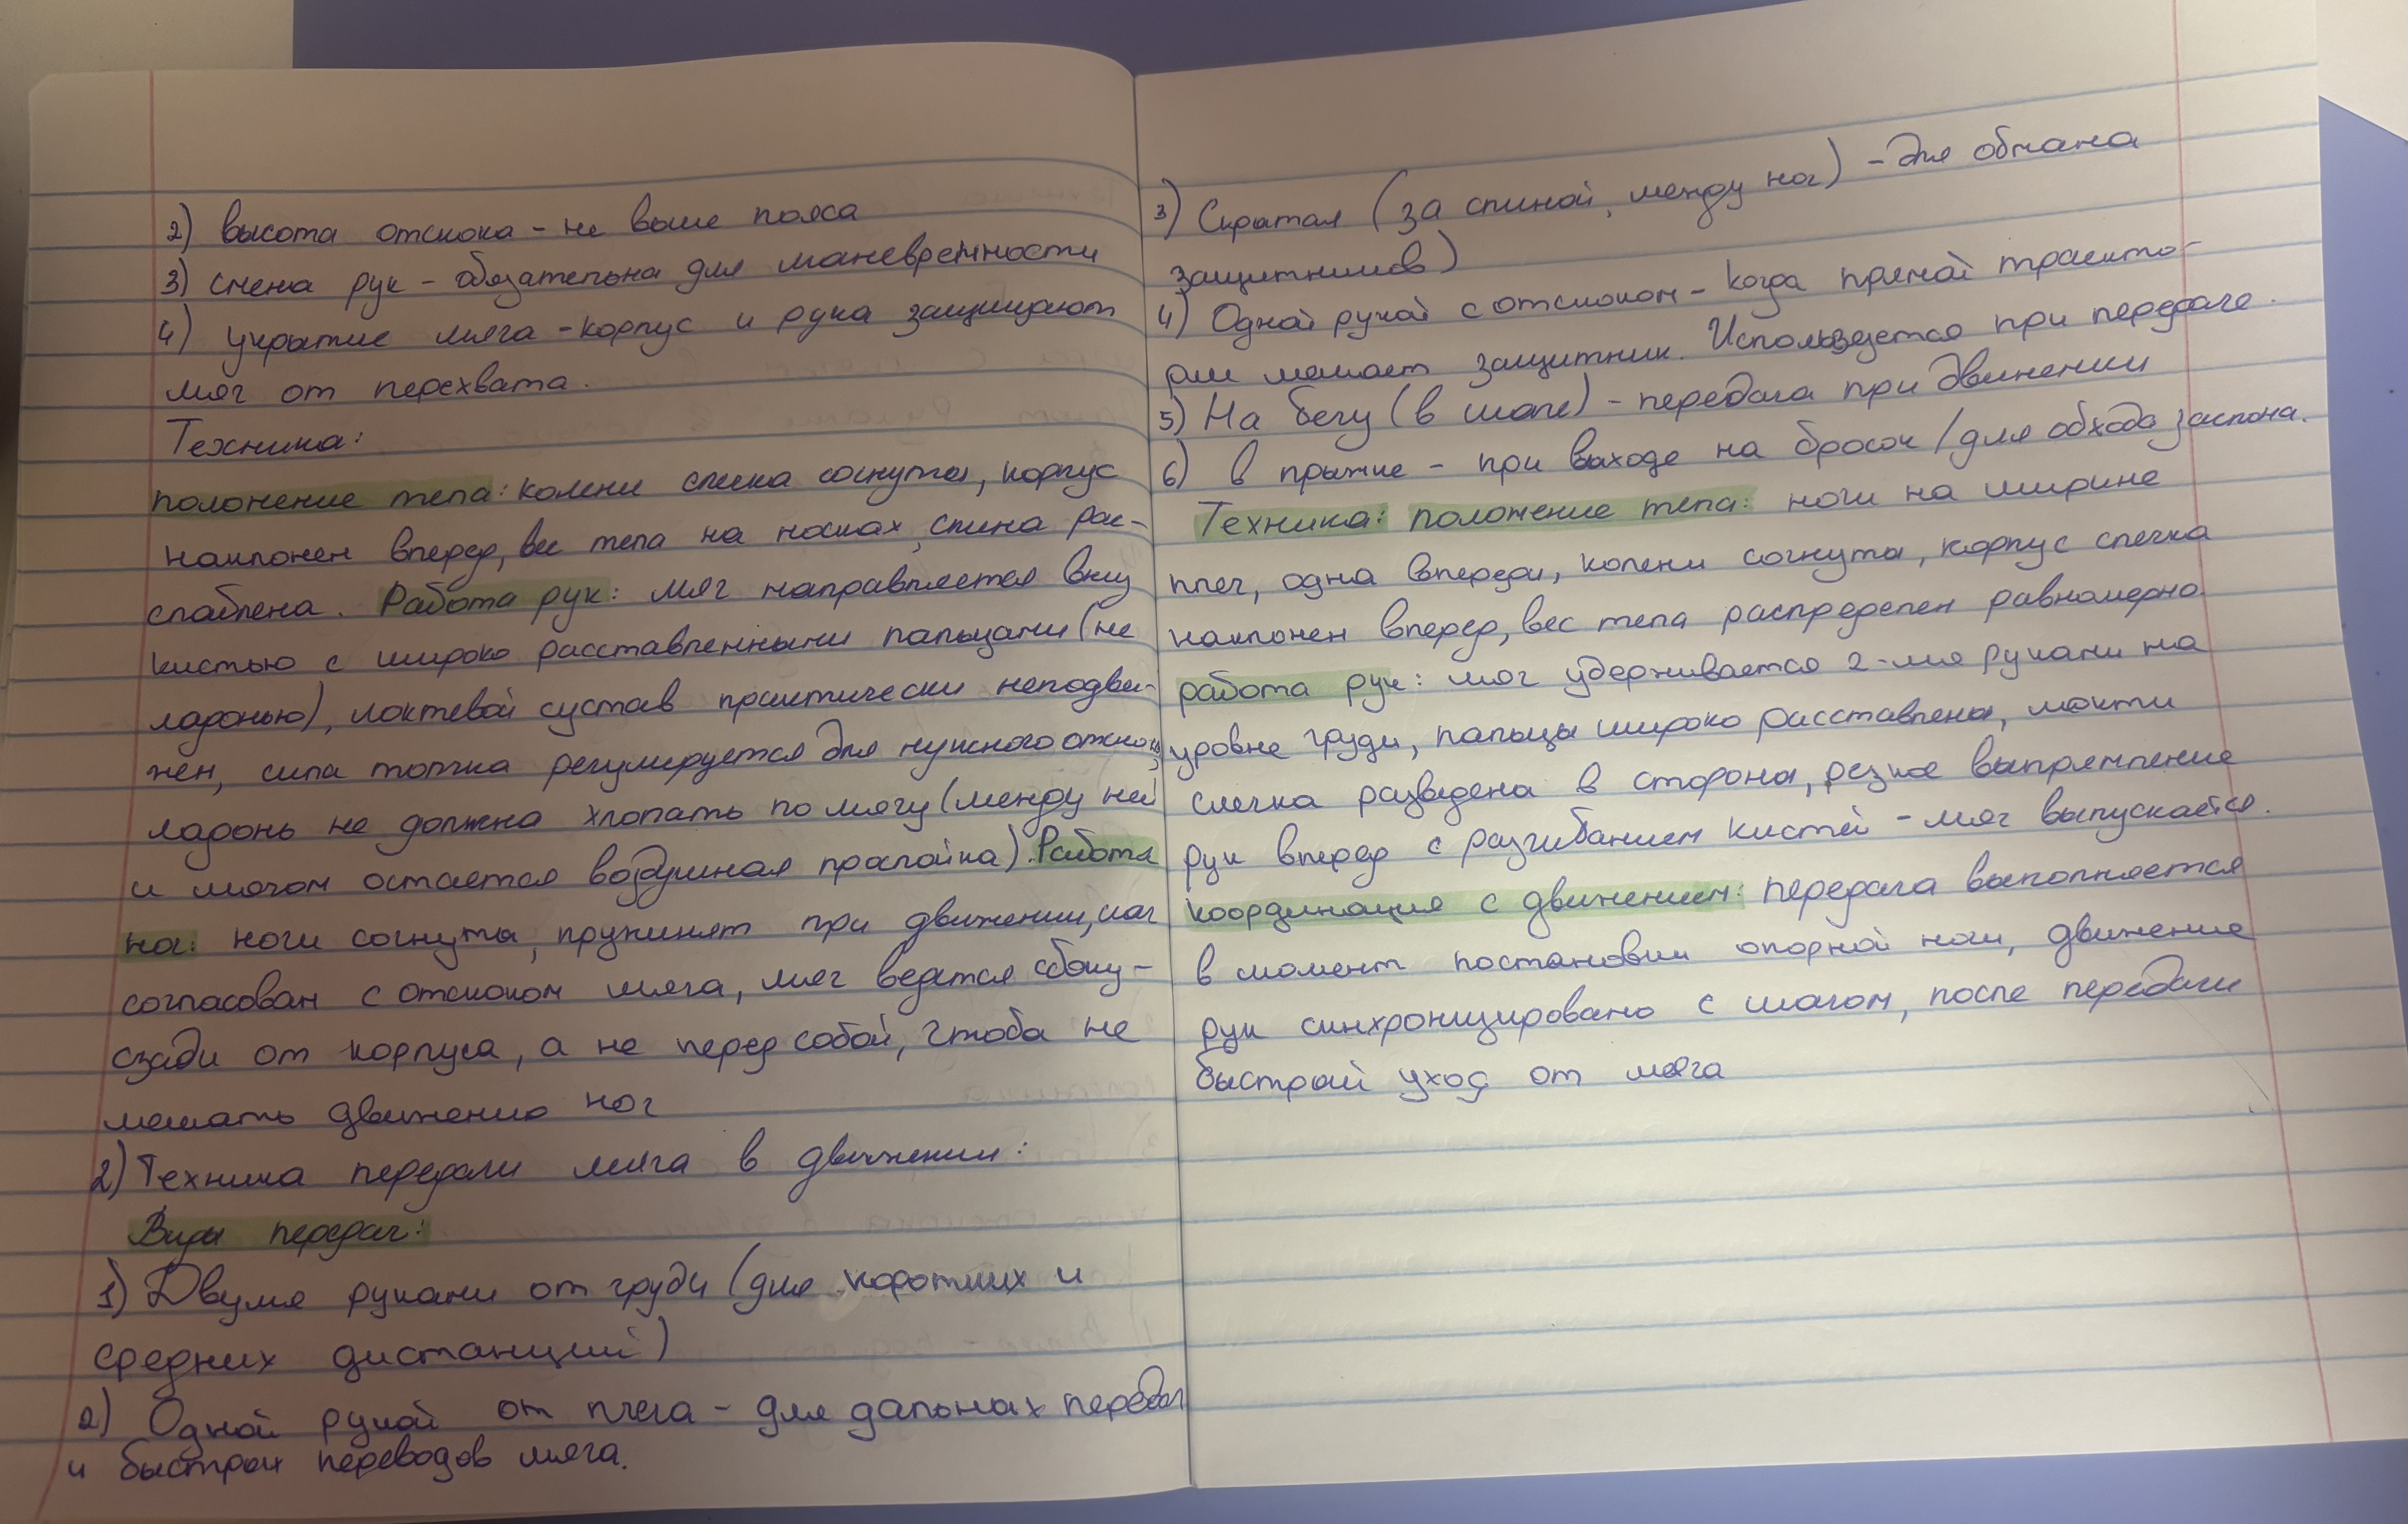 2) высота отскока - не выше пояса
3) смена рук - обязательна для маневренности
4) укрытие мяча - корпус и рука защищают
мяч от перехвата.
Техника:
положение тела: колени слегка согнуты, корпус
наклонен вперед, вес тела на носках, спина рас-
слаблена. Работа рук: мяч направляется вниз
кистью с широко расставленными пальцами (не
ладонью), локтевой сустав практически неподви-
жен, сила толчка регулируется для нужного отскока,
ладонь не должна хлопать по мячу (между ней
и мячом остается воздушная прослойка). Работа
ног: ноги согнуты, пружинят при движении, шаг
согласован с отскоком мяча, мяч ведется сбоку-
сзади от корпуса, а не перед собой, чтобы не
мешать движению ног
2) Техника передачи мяча в движении:
Виды передач:
1) Двумя руками от груди (для коротких и
средних дистанций)
2) Одной рукой от плеча - для дальных передач
и быстрых переводов мяча.
3) Скрытая (за спиной, между ног) - для обмана
защитников)
4) Одной рукой с отскоком - когда прямой траекто-
рии мешает защитник. Используется при передаче.
5) На бегу (в шаге) - передача при движении
6) в прыжке - при выходе на бросок / для обхода заслона.
Техника: положение тела: ноги на ширине
плеч, одна впереди, колени согнуты, корпус слегка
наклонен вперед, вес тела распределен равномерно
работа рук: мяч удерживается 2-мя руками на
уровне груди, пальцы широко расставлены, локти
слегка разведена в стороны, резкое выпрямление
рук вперед с разгибанием кистей - мяч выпускается.
координация с движением: передача выполняется
в момент постановки опорной ноги, движение
рук синхронизировано с шагом, после передачи
быстрый уход от мяча